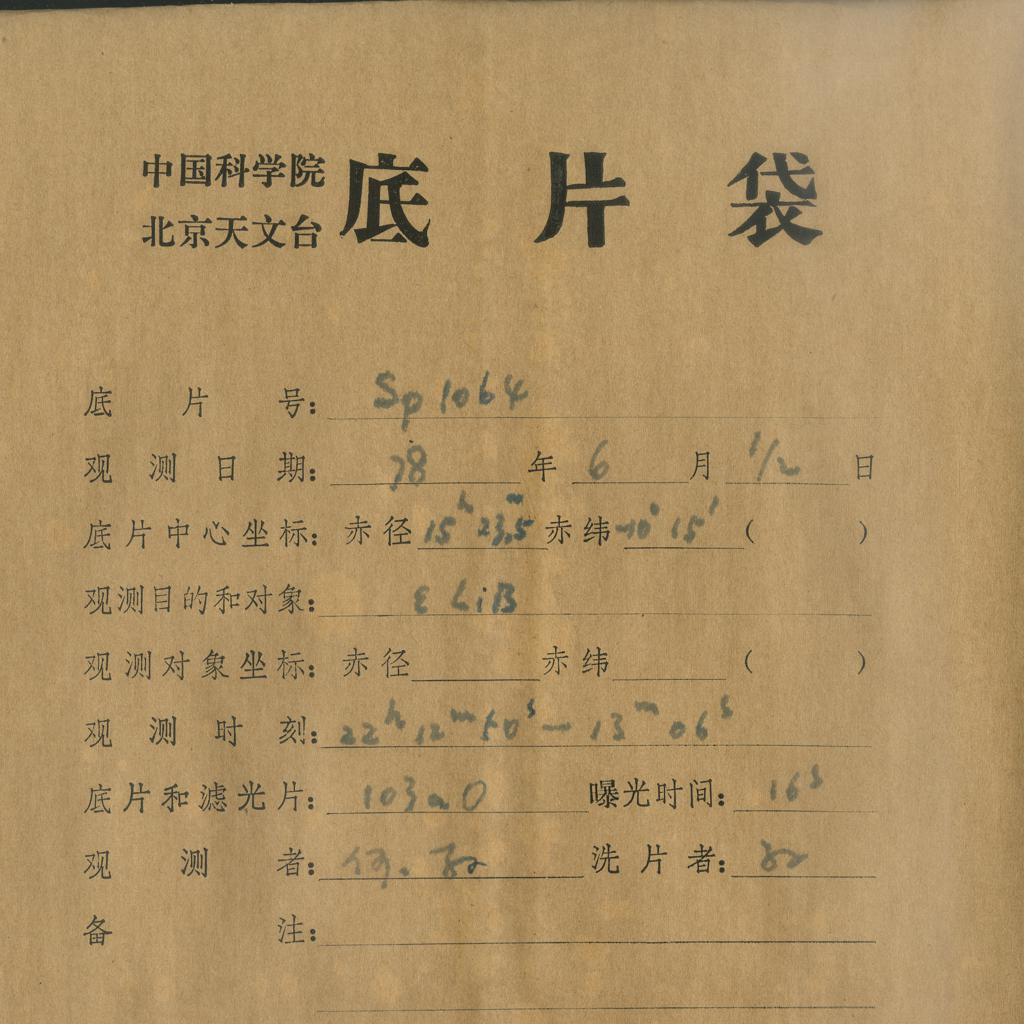 中国科学院
北京天文台
底片袋
底片号: Sp 1064
观测日期: 78 年 6 月 1/2 日
底片中心坐标: 赤径 15h 23.5m 赤纬 -10° 15' ( )
观测目的和对象: ε LiB
观测对象坐标: 赤径 赤纬 ( )
观测时刻: 22h 12m 50s — 13m 06s
底片和滤光片: 103aO 曝光时间: 16s
观测者: 何.
洗片者:
备注: